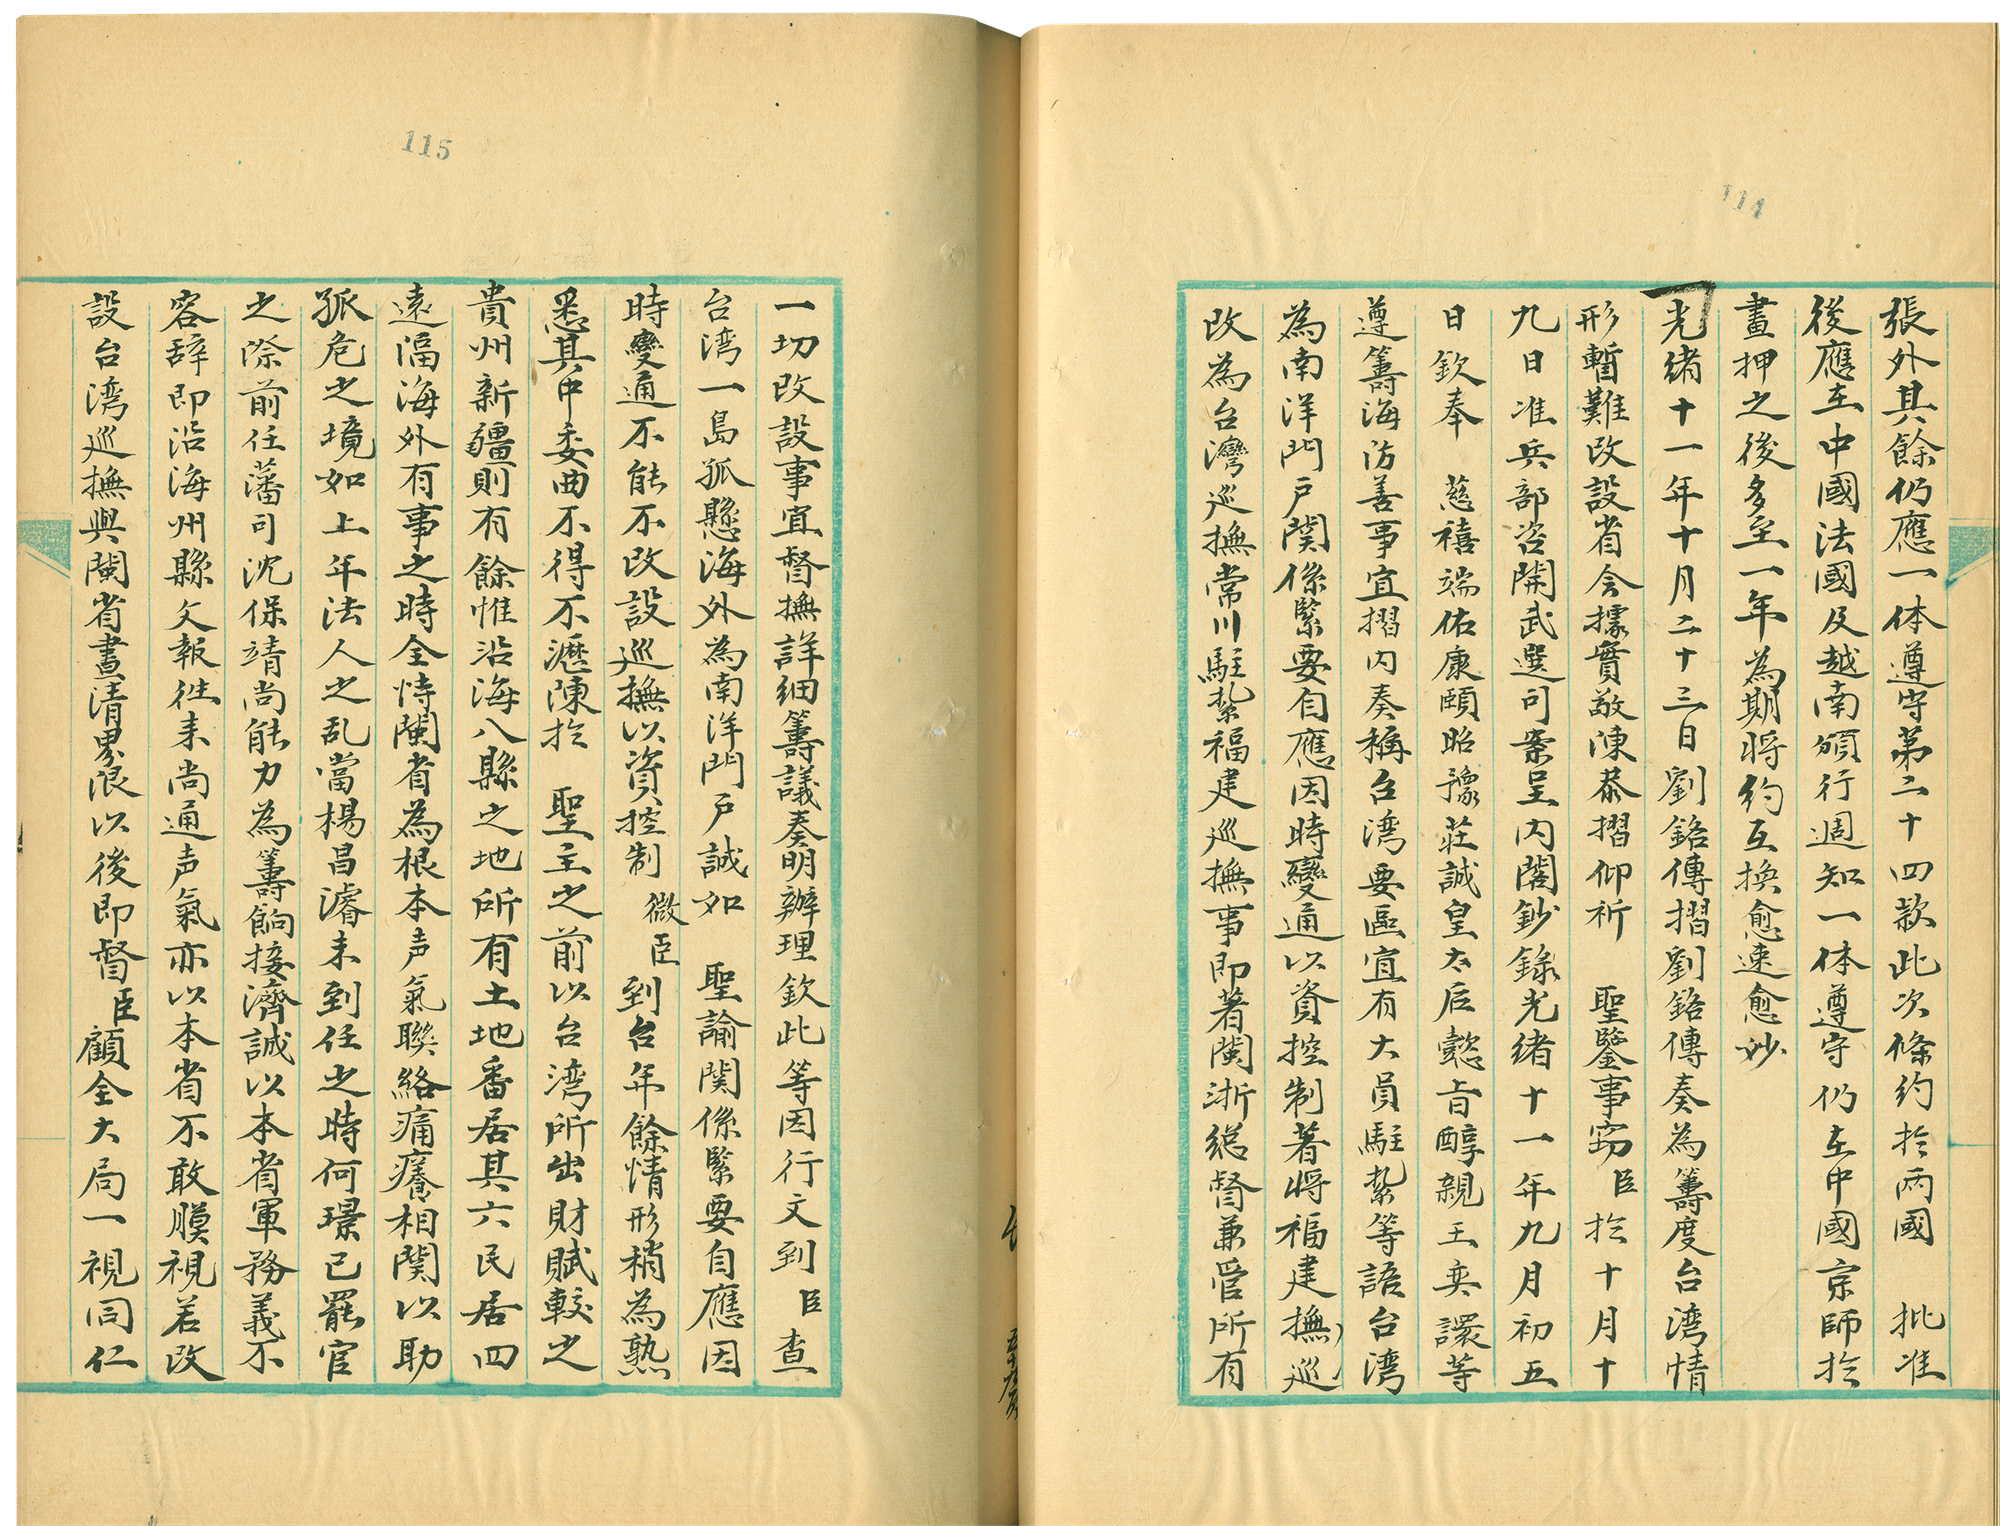 114
張外其餘仍應一体遵守第二十四款此次條約於兩國 批准
後應在中國法國及越南頒行週知一体遵守仍在中國京師於
畫押之後多至一年為期將約互換愈速愈妙
光緒十一年十月二十三日劉銘傳摺劉銘傳奏為籌度台湾情
形暫難改設省会據實敬陳恭摺仰祈 聖鑒事窃臣於十月十
九日准兵部咨開武選司案呈内閣鈔錄光緒十一年九月初五
日欽奉 慈禧端佑康頤昭豫荘誠皇太后懿旨醇親王奕譞等
遵籌海防善事宜摺内奏稱台湾要區宜有大員駐紥等語台湾
為南洋門戶関係緊要自應因時變通以資控制著將福建撫巡
改為台灣巡撫常川駐紥福建巡撫事即著閩浙総督兼管所有
115
一切改設事宜督撫詳細籌議奏明辦理欽此等因行文到臣查
台湾一島孤懸海外為南洋門戶誠如 聖諭関係緊要自應因
時變通不能不改設巡撫以資控制 微臣到台年餘情形稍為熟
悉其中委曲不得不瀝陳於 聖主之前以台湾所出財賦較之
貴州新疆則有餘惟沿海八縣之地所有土地番居其六民居四
遠濇海外有事之時全恃閩省為根本声氣聯絡痛癢相関以助
孤危之境如上年法人之乱當楊昌濬未到任之時何璟已罷官
之際前任藩司沈保靖尚能力為籌餉接濟誠以本省軍務義不
容辞即沿海州縣文報徃来尚通声氣亦以本省不敢膜視若改
設台湾巡撫與閩省畫清界限以後即督臣顧全大局一視同仁